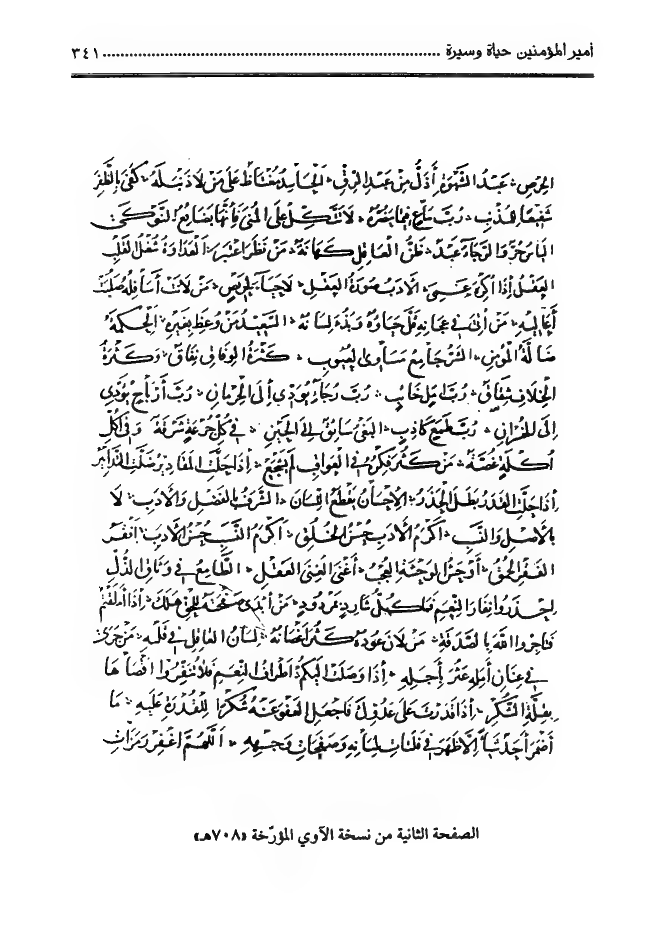 أمير المؤمنين حياة وسيرة ................................................ ٣٤١
الحرص ؞ عبد الشهوة أذل من عبد الرق ؞ الحاسد مغتاظ على من لا ذنب له ؞ كفى بالظفر
شفيعا لمذنب ؞ رب ساع فيما يضره ؞ لا تتكل على المنى فإنها بضائع النوكى
الياس حر والرجاء عبد ؞ ظن العاقل كهانة ؞ من نظر اعتبر ؞ العداوة شغل القلب
القلب إذا اكره عمي ؞ الأدب صورة العقل ؞ لا حياء لحريص ؞ من لانت أسافله صلبت
أعاليه ؞ من أتى في عجانه قل حياؤه وبذؤ لسانه ؞ السعيد من وعظ بغيره ؞ الحكمة
ضالة المؤمن ؞ الشر جامع مساوئ العيوب ؞ كثرة الوفاق نفاق ؞ وكثرة
الخلاف شقاق ؞ رب امل خائب ؞ رب رجاء يؤدي إلى الحرمان ؞ رب أرباح يؤدي
إلى الخسران ؞ رب طمع كاذب ؞ البغي سائق إلى الحين ؞ في كل جرعة شرقة وفي كل
أكلة غصة ؞ من كثر فكره في العواقب لم يشجع ؞ إذا حلت المقادير ضلت التدابير
إذا حل القدر بطل الحذر ؞ الإحسان يقطع اللسان ؞ الشرف بالفضل والأدب ؞ لا
بالأصل والنسب ؞ أكرم الأدب حسن الخلق ؞ أكرم النسب حسن الأدب ؞ أفقر
الفقر الحمق ؞ أوحش الوحشة العجب ؞ أغنى الغنى العقل ؞ الطامع في وثاق الذل
احذروا نفار النعم فما كل شارد مردود ؞ من أبدى صفحته للحق هلك ؞ إذا أملقتم
فتاجروا الله بالصدقة ؞ من لان عوده كثر أغصانه ؞ لسان العاقل في قلبه ؞ من جرى
في عنان أمله عثر بأجله ؞ إذا وصلت إليكم أطراف النعم فلا تنفروا أقصاها
بقلة الشكر ؞ إذا قدرت على عدوك فاجعل العفو عنه شكرا للقدرة عليه ؞ ما
أضمر أحد شيئا إلا ظهر في فلتات لسانه وصفحات وجهه ؞ اللهم اغفر رمزات
الصفحة الثانية من نسخة الآوي المؤرّخة «٧٠٨هـ»